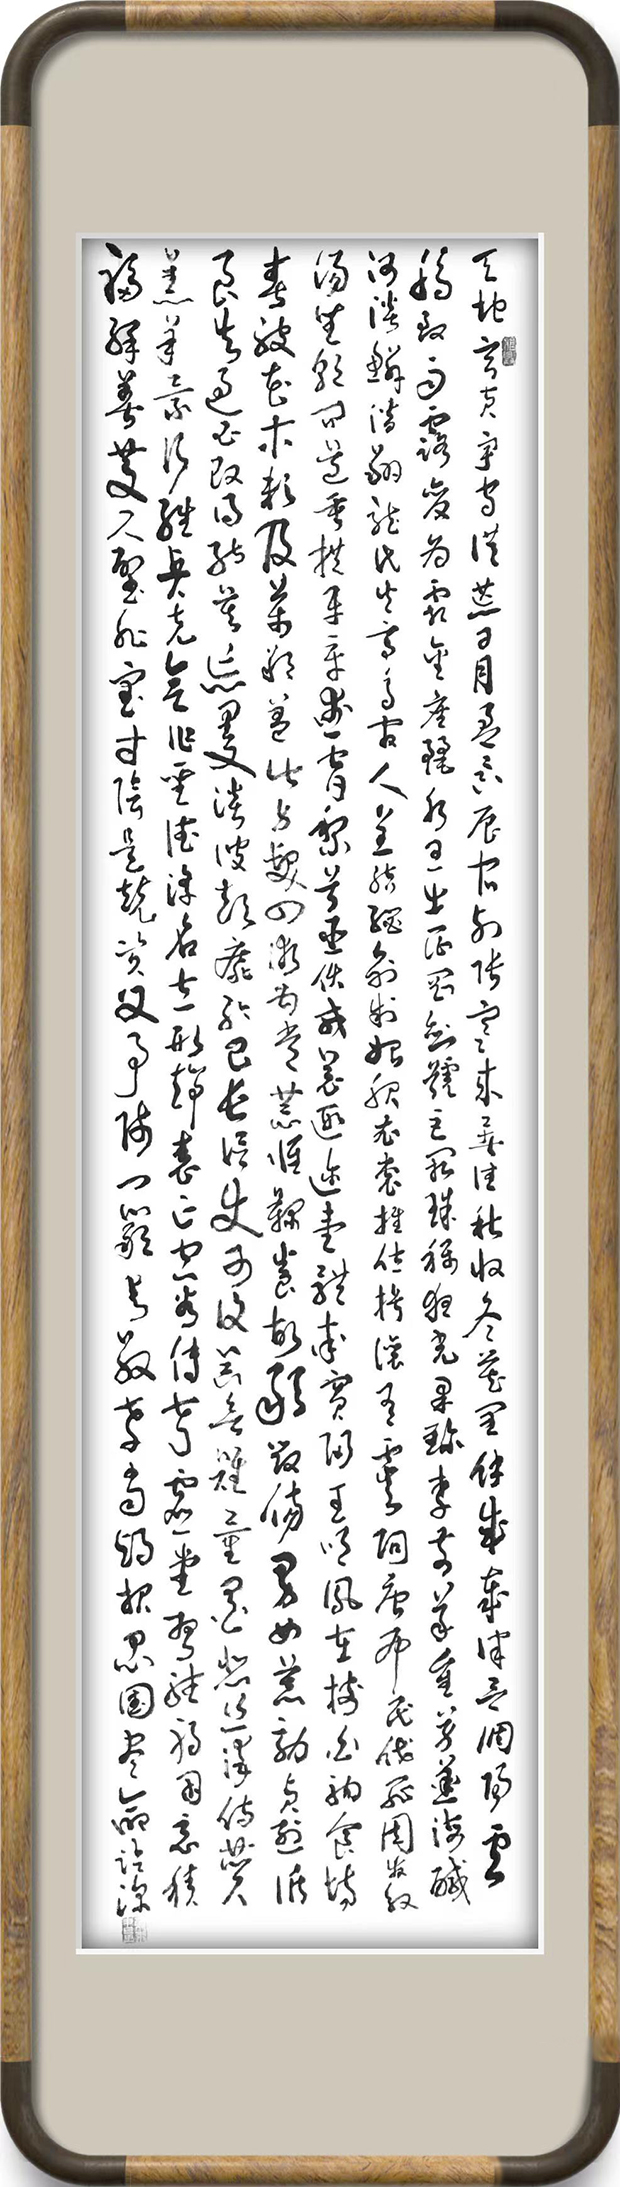 天地玄黃宇宙洪荒日月盈昃辰宿列張寒來暑往秋收冬藏閏餘成歲律呂調陽雲
騰致雨露結為霜金生麗水玉出崑岡劍號巨闕珠稱夜光果珍李柰菜重芥薑海鹹
河淡鱗潛羽翔龍師火帝鳥官人皇始制文字乃服衣裳推位讓國有虞陶唐弔民伐罪周發殷
湯坐朝問道垂拱平章愛育黎首臣伏戎羌遐邇壹體率賓歸王鳴鳳在樹白駒食場
被草木賴及萬方蓋此身髮四大五常恭惟鞠養豈敢毀傷
良知過必改得能莫忘罔談彼短靡恃己長信使可覆器欲難量墨悲絲染詩讚
羔羊景行維賢克念作聖德建名立形端表正空谷傳聲虛堂習聽禍因惡積
福緣善慶尺璧非寶寸陰是競資父事君曰嚴與敬孝當竭力忠則盡命臨深